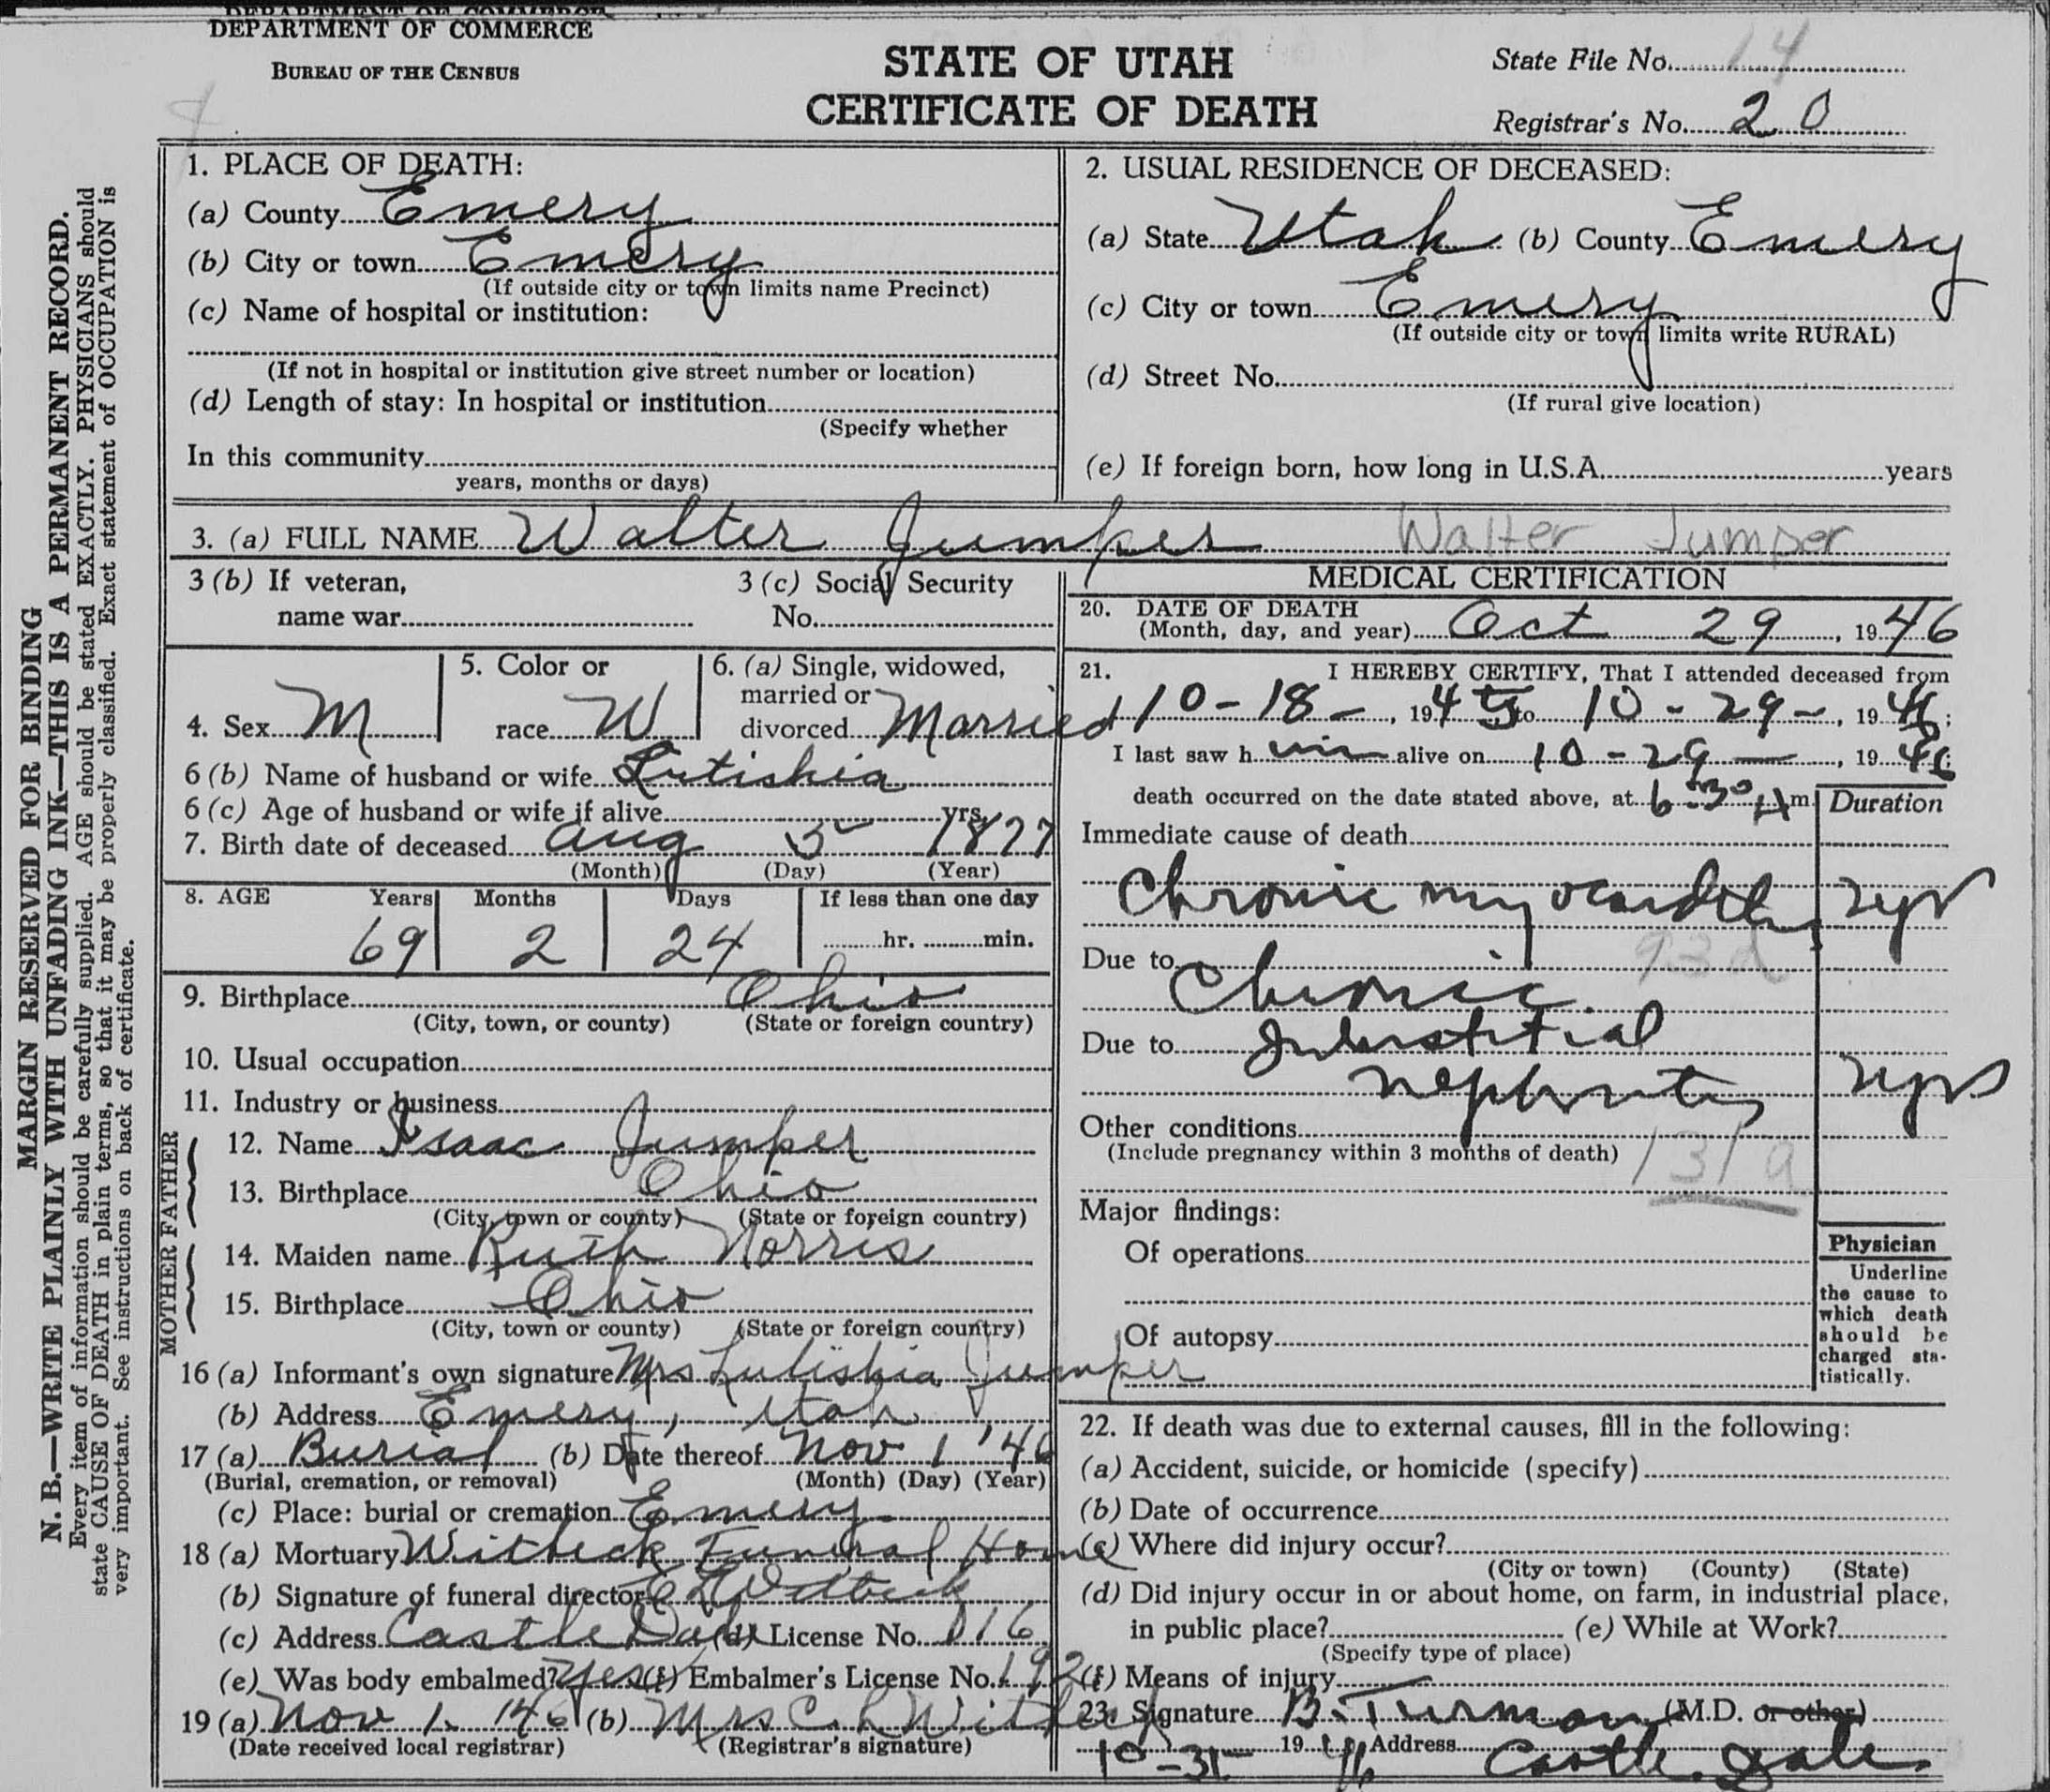 DEPARTMENT OF COMMERCE
BUREAU OF THE CENSUS
STATE OF UTAH
CERTIFICATE OF DEATH
State File No. 14
Registrar's No. 20
MARGIN RESERVED FOR BINDING
N. B.—WRITE PLAINLY WITH UNFADING INK—THIS IS A PERMANENT RECORD.
Every item of information should be carefully supplied. AGE should be stated EXACTLY. PHYSICIANS should
state CAUSE OF DEATH in plain terms, so that it may be properly classified. Exact statement of OCCUPATION is
very important. See instructions on back of certificate.
1. PLACE OF DEATH:
(a) County Emery
(b) City or town Emery
(If outside city or town limits name Precinct)
(c) Name of hospital or institution:
(If not in hospital or institution give street number or location)
(d) Length of stay: In hospital or institution
(Specify whether
In this community
years, months or days)
2. USUAL RESIDENCE OF DECEASED:
(a) State Utah (b) County Emery
(c) City or town Emery
(If outside city or town limits write RURAL)
(d) Street No.
(If rural give location)
(e) If foreign born, how long in U.S.A. years
3. (a) FULL NAME Walter Jumper Walter Jumper
3 (b) If veteran,
name war
3 (c) Social Security
No.
4. Sex M
5. Color or
race W
6. (a) Single, widowed,
married or
divorced Married
6 (b) Name of husband or wife Lutishia
6 (c) Age of husband or wife if alive yrs.
7. Birth date of deceased Aug 5 1877
(Month) (Day) (Year)
8. AGE Years Months Days If less than one day
69 2 24 hr. min.
9. Birthplace Ohio
(City, town, or county) (State or foreign country)
10. Usual occupation
11. Industry or business
FATHER
12. Name Isaac Jumper
13. Birthplace Ohio
(City, town or county) (State or foreign country)
MOTHER
14. Maiden name Ruth Norris
15. Birthplace Ohio
(City, town or county) (State or foreign country)
16 (a) Informant's own signature Mrs Lutishia Jumper
(b) Address Emery, Utah
17 (a) Burial (b) Date thereof Nov 1 '46
(Burial, cremation, or removal) (Month) (Day) (Year)
(c) Place: burial or cremation Emery
18 (a) Mortuary Witbeck Funeral Home
(b) Signature of funeral director Witbeck
(c) Address Castle Dale (d) License No. 016
(e) Was body embalmed? Yes (f) Embalmer's License No. 192
19 (a) Nov 1. '46 (b) Mrs C. L Witbeck
(Date received local registrar) (Registrar's signature)
MEDICAL CERTIFICATION
20. DATE OF DEATH
(Month, day, and year) Oct 29, 1946
21. I HEREBY CERTIFY, That I attended deceased from
10-18-, 194 to 10-29-, 1946;
I last saw him alive on 10-29-, 1946;
death occurred on the date stated above, at 6:30 A m.
Duration
Immediate cause of death
Chronic myocarditis 2yr
93d
Due to Chronic
Due to Interstitial
nephritis 2yrs
Other conditions
(Include pregnancy within 3 months of death)
131a
Major findings:
Of operations
Of autopsy
Physician
Underline
the cause to
which death
should be
charged sta-
tistically.
22. If death was due to external causes, fill in the following:
(a) Accident, suicide, or homicide (specify)
(b) Date of occurrence
(c) Where did injury occur?
(City or town) (County) (State)
(d) Did injury occur in or about home, on farm, in industrial place,
in public place? (e) While at Work?
(Specify type of place)
(f) Means of injury
23. Signature B. Turman (M.D. or other)
10-31- 1946 Address Castle Dale.